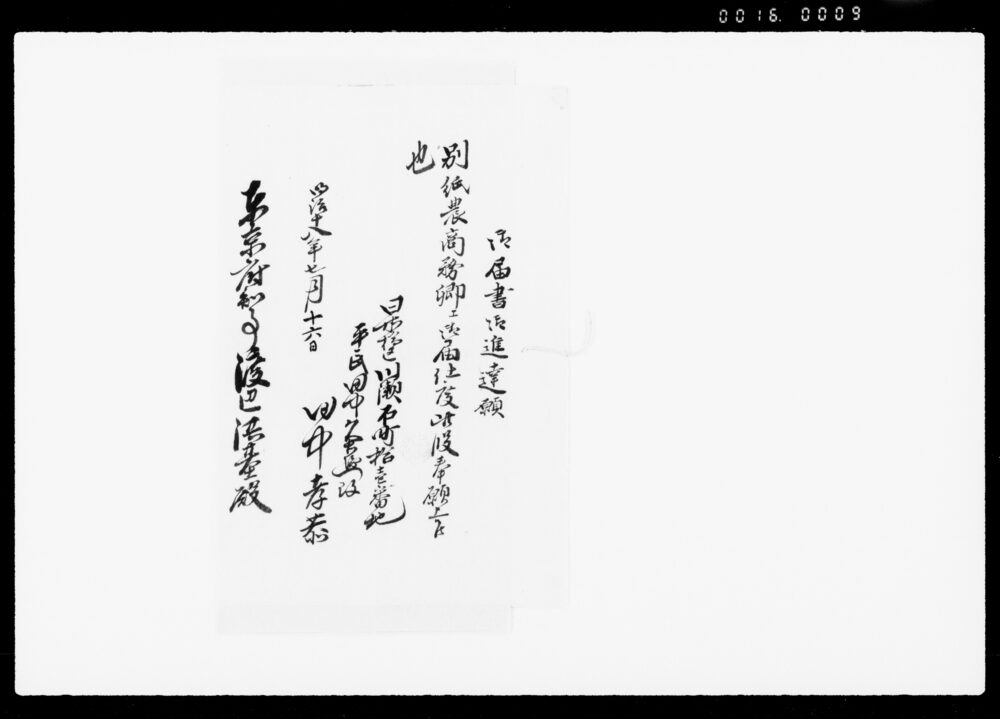 0016.0009
御届書御進達願
別紙農商務卿江御届仕度此段奉願上候
也
日本橋区川瀬石町拾壱番地
平民田中久兵衛改
明治十八年七月十六日
田中孝恭
東京府知事渡辺洪基殿